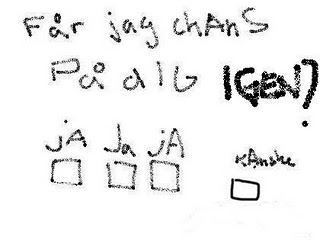 Får jag chAnS
På dIG IGEN?
jA Ja jA kAnske